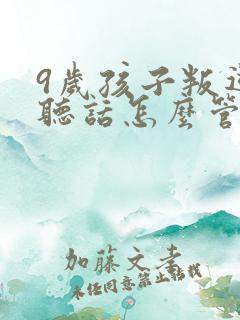 9歲孩子叛逆
聽話怎麼管
加藤文孝
未經同意禁止轉載